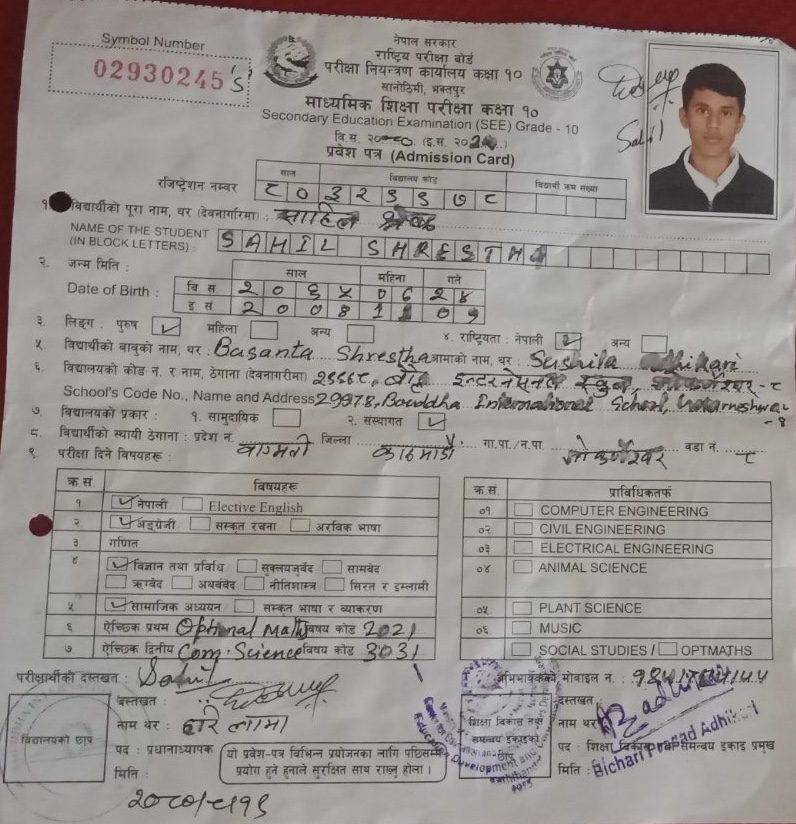 Symbol Number
02930245 'S'
नेपाल सरकार
राष्ट्रिय परीक्षा बोर्ड
परीक्षा नियन्त्रण कार्यालय कक्षा १०
सानोठिमी, भक्तपुर
माध्यमिक शिक्षा परीक्षा कक्षा १०
Secondary Education Examination (SEE) Grade - 10
वि.स. २०८० (इ.स. २०२४)
प्रवेश पत्र (Admission Card)
Sahil
साल विद्यालय कोड विद्यार्थी क्रम संख्या
रजिष्ट्रेशन नम्बर ८ ० ३ २ ९ ९ ७ ८
१. विद्यार्थीको पूरा नाम, थर (देवनागरिमा) : साहिल श्रेष्ठ
NAME OF THE STUDENT (IN BLOCK LETTERS) SAHIL SHRESTHA
२. जन्म मिति : साल महिना गते
Date of Birth : वि स २०६५ ०६ २४
इ सं 2008 09
३. लिङ्ग : पुरुष ✓ महिला अन्य ४. राष्ट्रियता : नेपाली ✓ अन्य
५. विद्यार्थीको बाबुको नाम, थर : Basanta Shrestha आमाको नाम, थर : Sushila Adhikari
६. विद्यालयको कोड नं. र नाम, ठेगाना (देवनागरीमा) इन्टरनेशनल स्कुल, गोकर्णेश्वर - ८
School's Code No., Name and Address 29978, Bouddha International School, - 8
७. विद्यालयको प्रकार : १. सामुदायिक २. संस्थागत ✓
८. विद्यार्थीको स्थायी ठेगाना : प्रदेश नं. वाग्मती जिल्ला काठमाडौं गा.पा./न.पा. गोकर्णेश्वर वडा नं. ८
९. परीक्षा दिने विषयहरू :
क्र सं. विषयहरू
१ ✓ नेपाली Elective English
२ ✓ अङ्ग्रेजी संस्कृत रचना अरबिक भाषा
३ गणित
४ ✓ विज्ञान तथा प्रविधि सुक्लयजुर्वेद सामवेद
ऋग्वेद अथर्ववेद नीतिशास्त्र सिरत र इस्लामी
५ ✓ सामाजिक अध्ययन संस्कृत भाषा र व्याकरण
६ ऐच्छिक प्रथम Optional Math विषय कोड 2021
७ ऐच्छिक द्वितीय Com. Science विषय कोड 3031
क्र सं. प्राविधिकतर्फ
०१ COMPUTER ENGINEERING
०२ CIVIL ENGINEERING
०३ ELECTRICAL ENGINEERING
०४ ANIMAL SCIENCE
०५ PLANT SCIENCE
०६ MUSIC
SOCIAL STUDIES / OPTMATHS
परीक्षार्थीको दस्तखत : Sahil
अभिभावकको मोबाइल न. :
विद्यालयको छाप
दस्तखत :
नाम थर : हरि लामा
पद : प्रधानाध्यापक
मिति :
यो प्रवेश-पत्र विभिन्न प्रयोजनका लागि पछिसम्म
प्रयोग हुने हुनाले सुरक्षित साथ राख्नु होला ।
शिक्षा विकास तथा
समन्वय इकाइको
छाप
Education Development and
दस्तखत :
नाम थर :
पद : शिक्षा विकास तथा समन्वय इकाइ प्रमुख
मिति : Bichari Prasad Adhikari